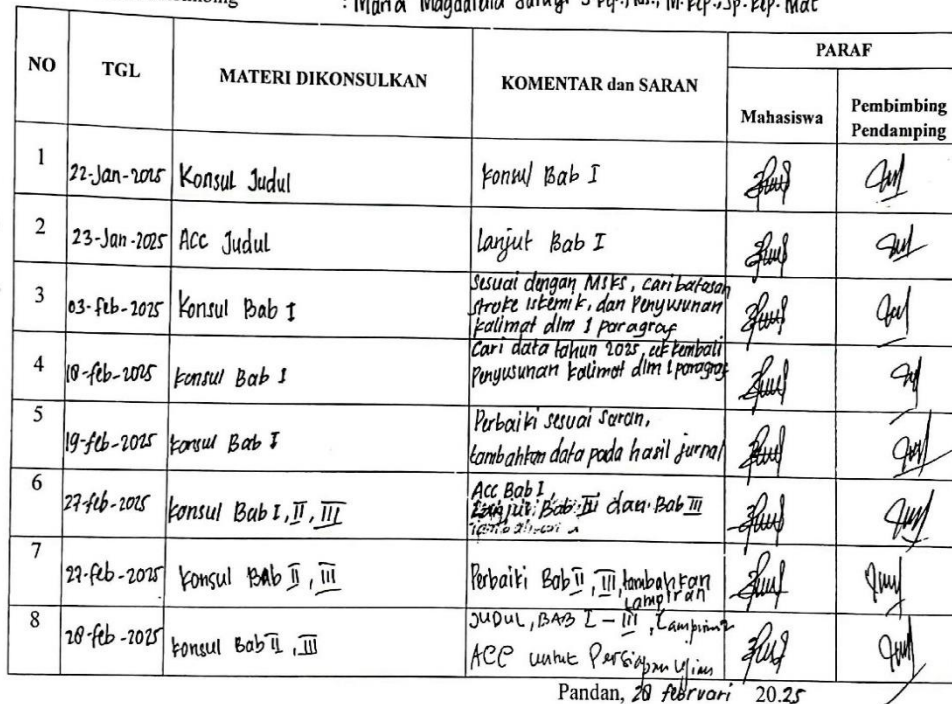 : Maria Magdalena Saragi
NO TGL MATERI DIKONSULKAN KOMENTAR dan SARAN PARAF
Mahasiswa Pembimbing Pendamping
1 22-Jan-2025 Konsul Judul Konsul Bab I
2 23-Jan-2025 Acc Judul Lanjut Bab I
3 03-feb-2025 Konsul Bab I sesuai dengan MSKS, cari batasan
stroke iskemik, dan Penyusunan
kalimat dlm 1 paragraf
4 18-feb-2025 konsul Bab I Cari data tahun 2025, cek kembali
Penyusunan kalimat dlm 1 paragraf
5 19-feb-2025 konsul Bab I Perbaiki sesuai saran,
tambahkan data pada hasil jurnal
6 27-feb-2025 konsul Bab I, II, III Acc Bab I,
Lanjut Bab II dan Bab III
7 27-feb-2025 konsul Bab II, III Perbaiki Bab II, III, tambahkan
Lampiran
8 28-feb-2025 konsul Bab II, III JUDUL, BAB I - III, Lampiran
ACC untuk Persiapan Ujian
Pandan, 28 februari 2025